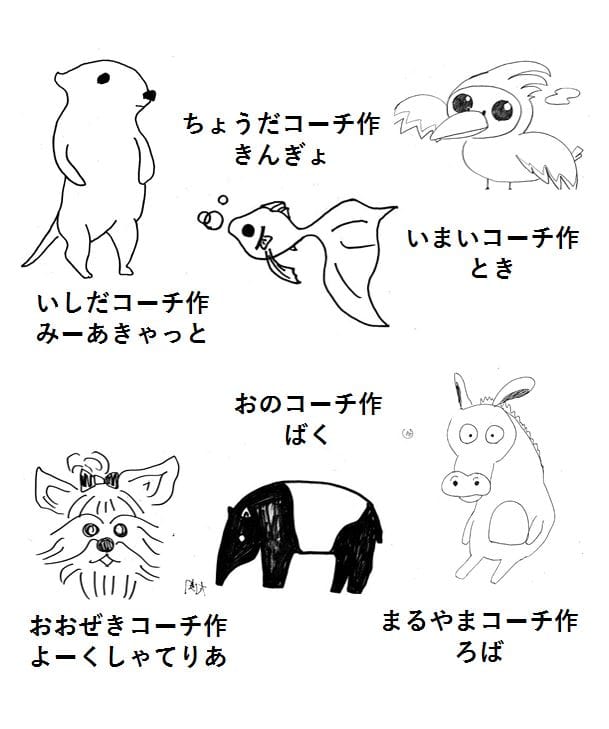 ちょうだコーチ作
きんぎょ
いまいコーチ作
とき
いしだコーチ作
みーあきゃっと
おのコーチ作
ばく
おおぜきコーチ作
よーくしゃてりあ
まるやまコーチ作
ろば